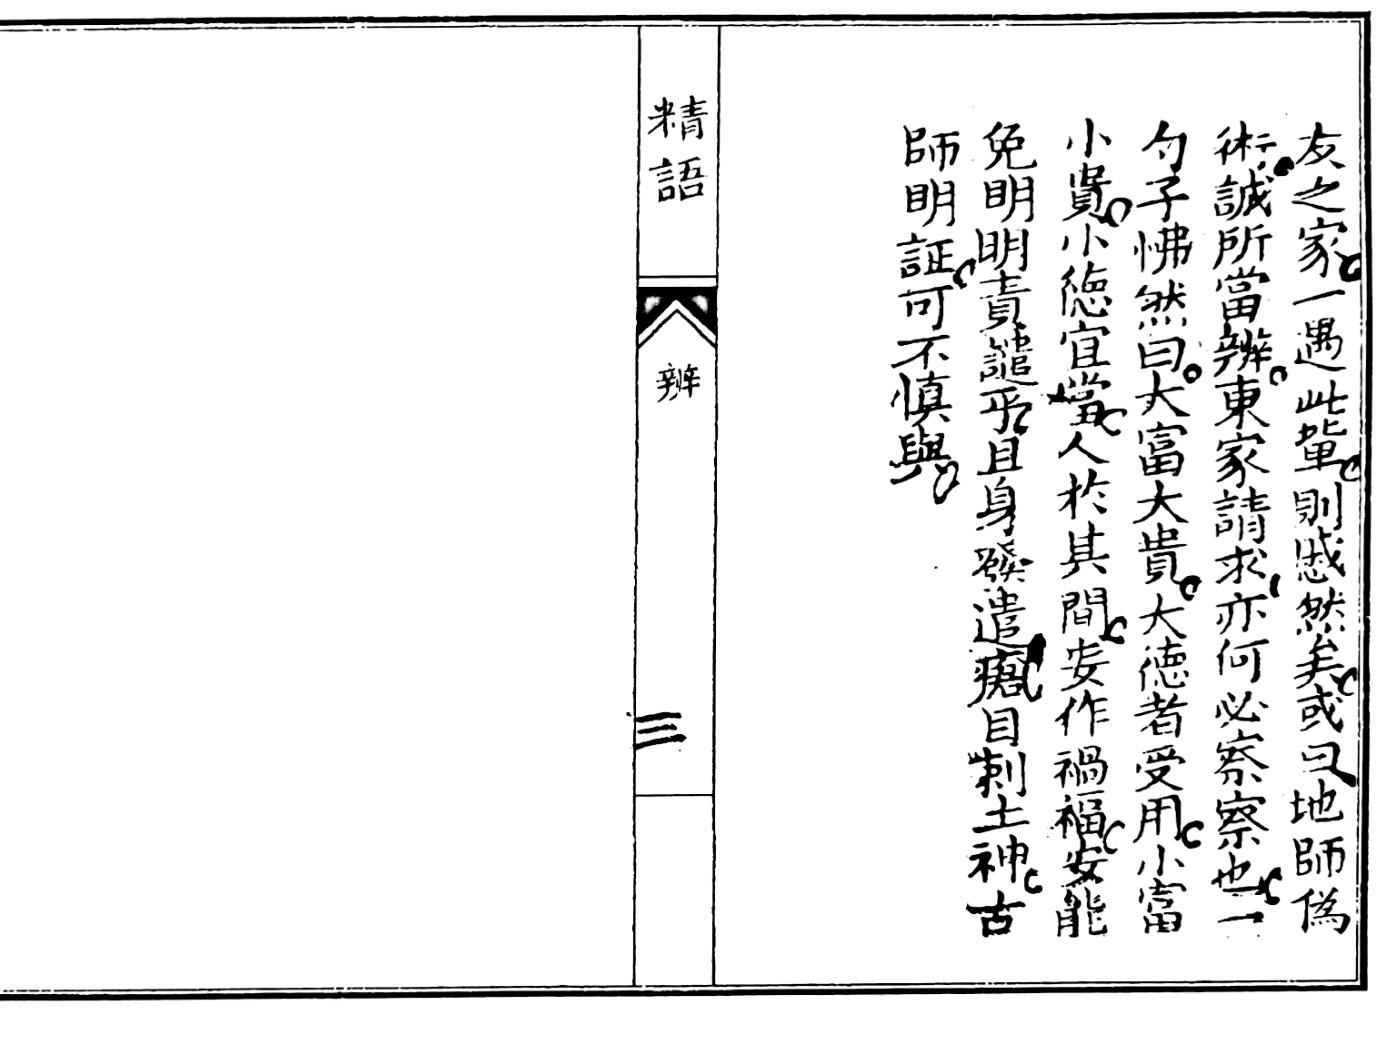 友之家一遇此輩則慼然矣或曰地師偽
術誠所當辨東家請求亦何必察察也一
勺子怫然曰大富大貴大德者受用小富
小貴小德宜當人於其間妄作禍福安能
免明明責譴乎且身發遣瘛目刺土神古
師明証可不慎與
精語
辨
三